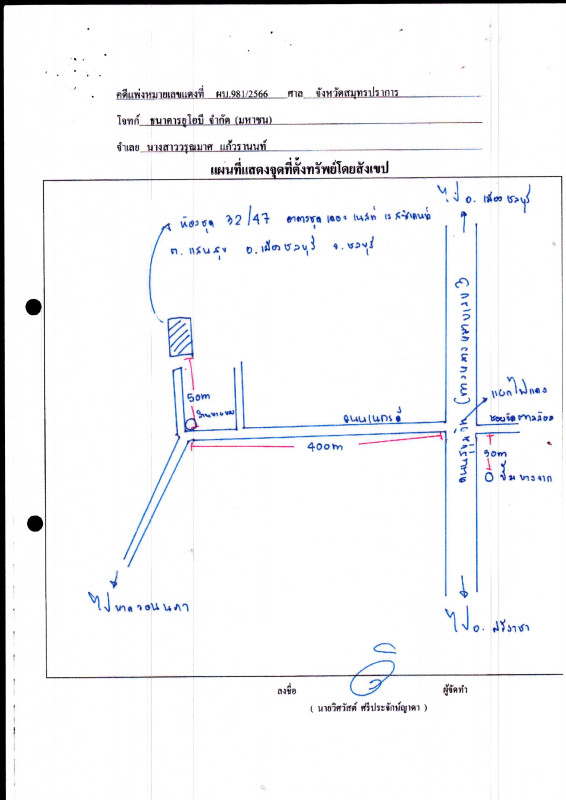 คดีแพ่งหมายเลขแดงที่ ผบ.981/2566 ศาล จังหวัดสมุทรปราการ
โจทก์ ธนาคารยูโอบี จำกัด (มหาชน)
จำเลย นางสาววรุณมาศ แก้วรานนท์
แผนที่แสดงจุดที่ตั้งทรัพย์โดยสังเขป
ไป อ. เมืองชลบุรี
ห้องชุด 32/47 อาคารชุด เดอะ เนสท์ เรสซิเดนท์
ต. แสนสุข อ. เมืองชลบุรี จ. ชลบุรี
ถนนสุขุมวิท
แยกไฟแดง
50m
ถนนเนตรดี
400m
50m
ปั๊ม บางจาก
ไป หาดวอนนภา
ไป อ. ศรีราชา
ลงชื่อ ผู้จัดทำ
( นายวิศวัสต์ ศรีประจักษ์ญาดา )